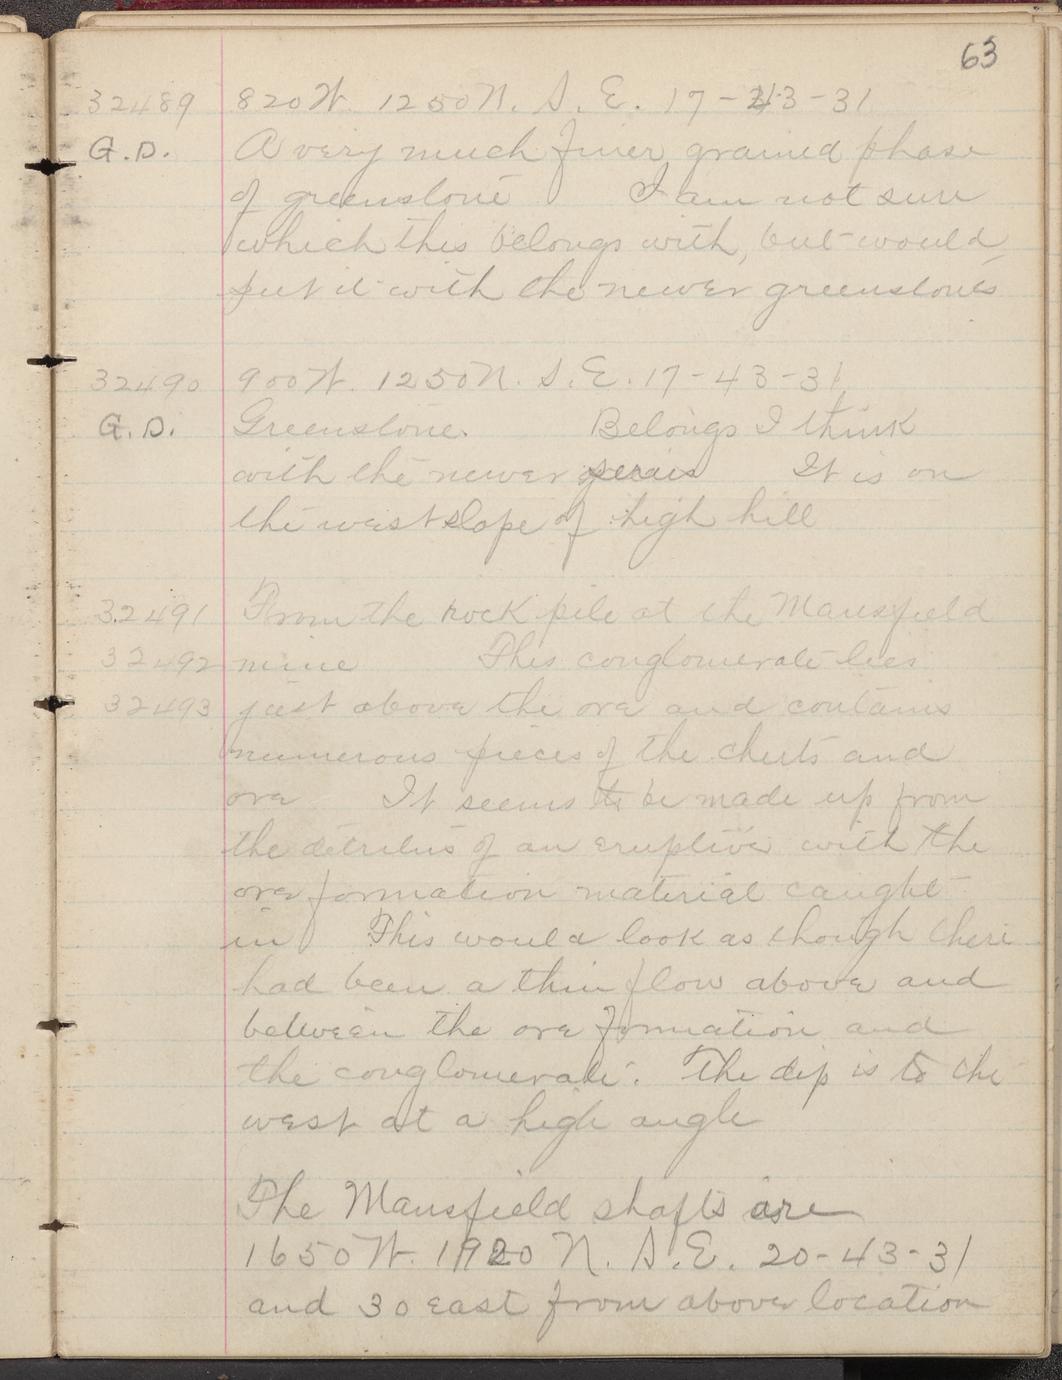 63
32489 820 W. 1250 N. S.E. 17-43-31
G.D. A very much finer grained phase
of greenstone I am not sure
which this belongs with, but would
put it with the newer greenstones
32490 900 W. 1250 N. S.E. 17-43-31
G.D. Greenstone. Belongs I think
with the newer series It is on
the west slope of high hill
32491 From the rock pile at the Mansfield
32492 mine This conglomerate lies
32493 just above the ore and contains
numerous pieces of the cherts and
ore It seems to be made up from
the detritus of an eruptive with the
ore formation material caught
in This would look as though there
had been a thin flow above and
between the ore formation and
the conglomerate. The dip is to the
west at a high angle
The Mansfield shafts are
1650 W. 1920 N. S.E. 20-43-31
and 30 east from above location